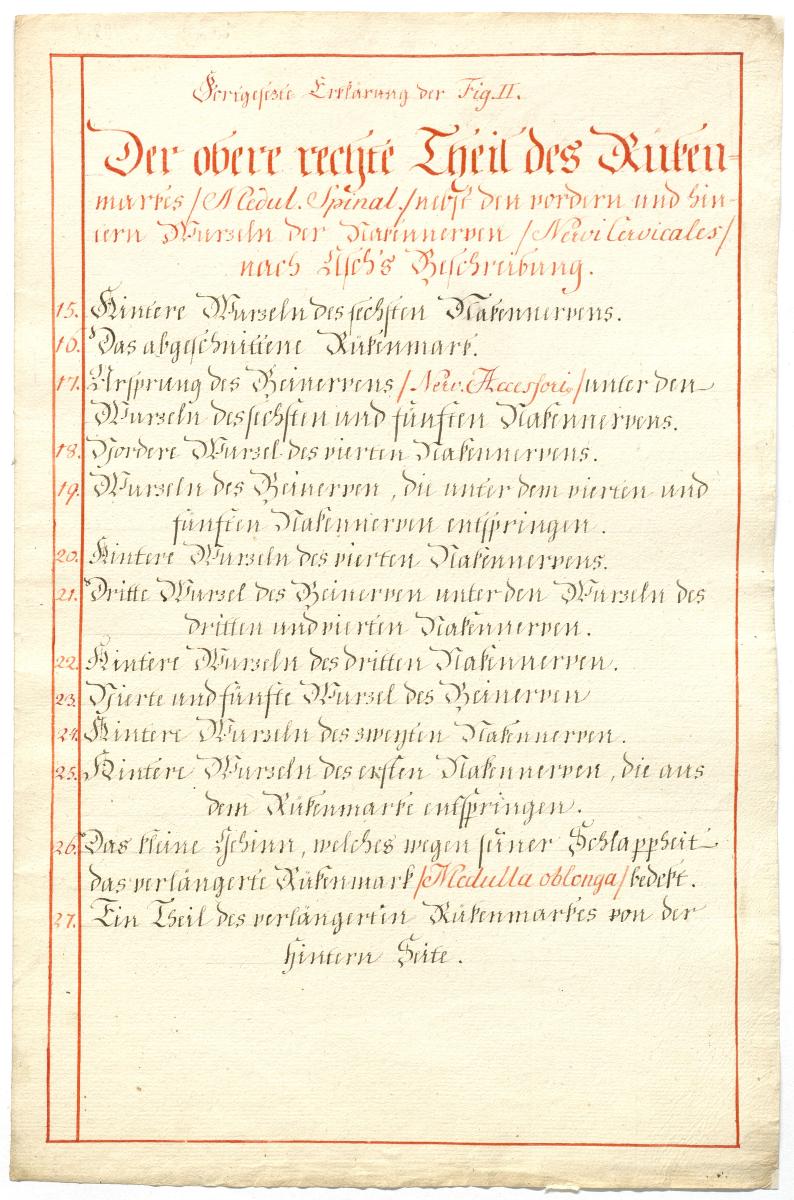 Fortgesezte Erklärung der Fig. II.
Der obere rechte Theil des Rüken-
markes /Medul. Spinal./ nebst den vordern und hin-
tern Wurzeln der Nakennerven /Nervi Cervicales/
nach Asch's Beschreibung.
15. Hintere Wurzeln des sechsten Nakennervens.
16. Das abgeschnittene Rükenmark.
17. Ursprung des Beinervens /Nerv. Accessori,/ unter den
Wurzeln des sechsten und fünften Nakennervens.
18. Vordere Wurzel des vierten Nakennervens.
19. Wurzeln des Beinerven, die unter dem vierten und
fünften Nakennerven entspringen.
20. Hintere Wurzeln des vierten Nakennervens.
21. Dritte Wurzel des Beinerven unter den Wurzeln des
dritten und vierten Nakennerven.
22. Hintere Wurzeln des dritten Nakennerven.
23. Vierte und fünfte Wurzel des Beinerven
24. Hintere Wurzeln des zweyten Nakennerven.
25. Hintere Wurzeln des ersten Nakennerven, die aus
dem Rükenmarke entspringen.
26. Das kleine Gehirn, welches wegen seiner Schlappheit
das verlängerte Rükenmark /Medulla oblonga/ bedekt.
27. Ein Theil des verlängerten Rükenmarkes von der
hintern Seite.